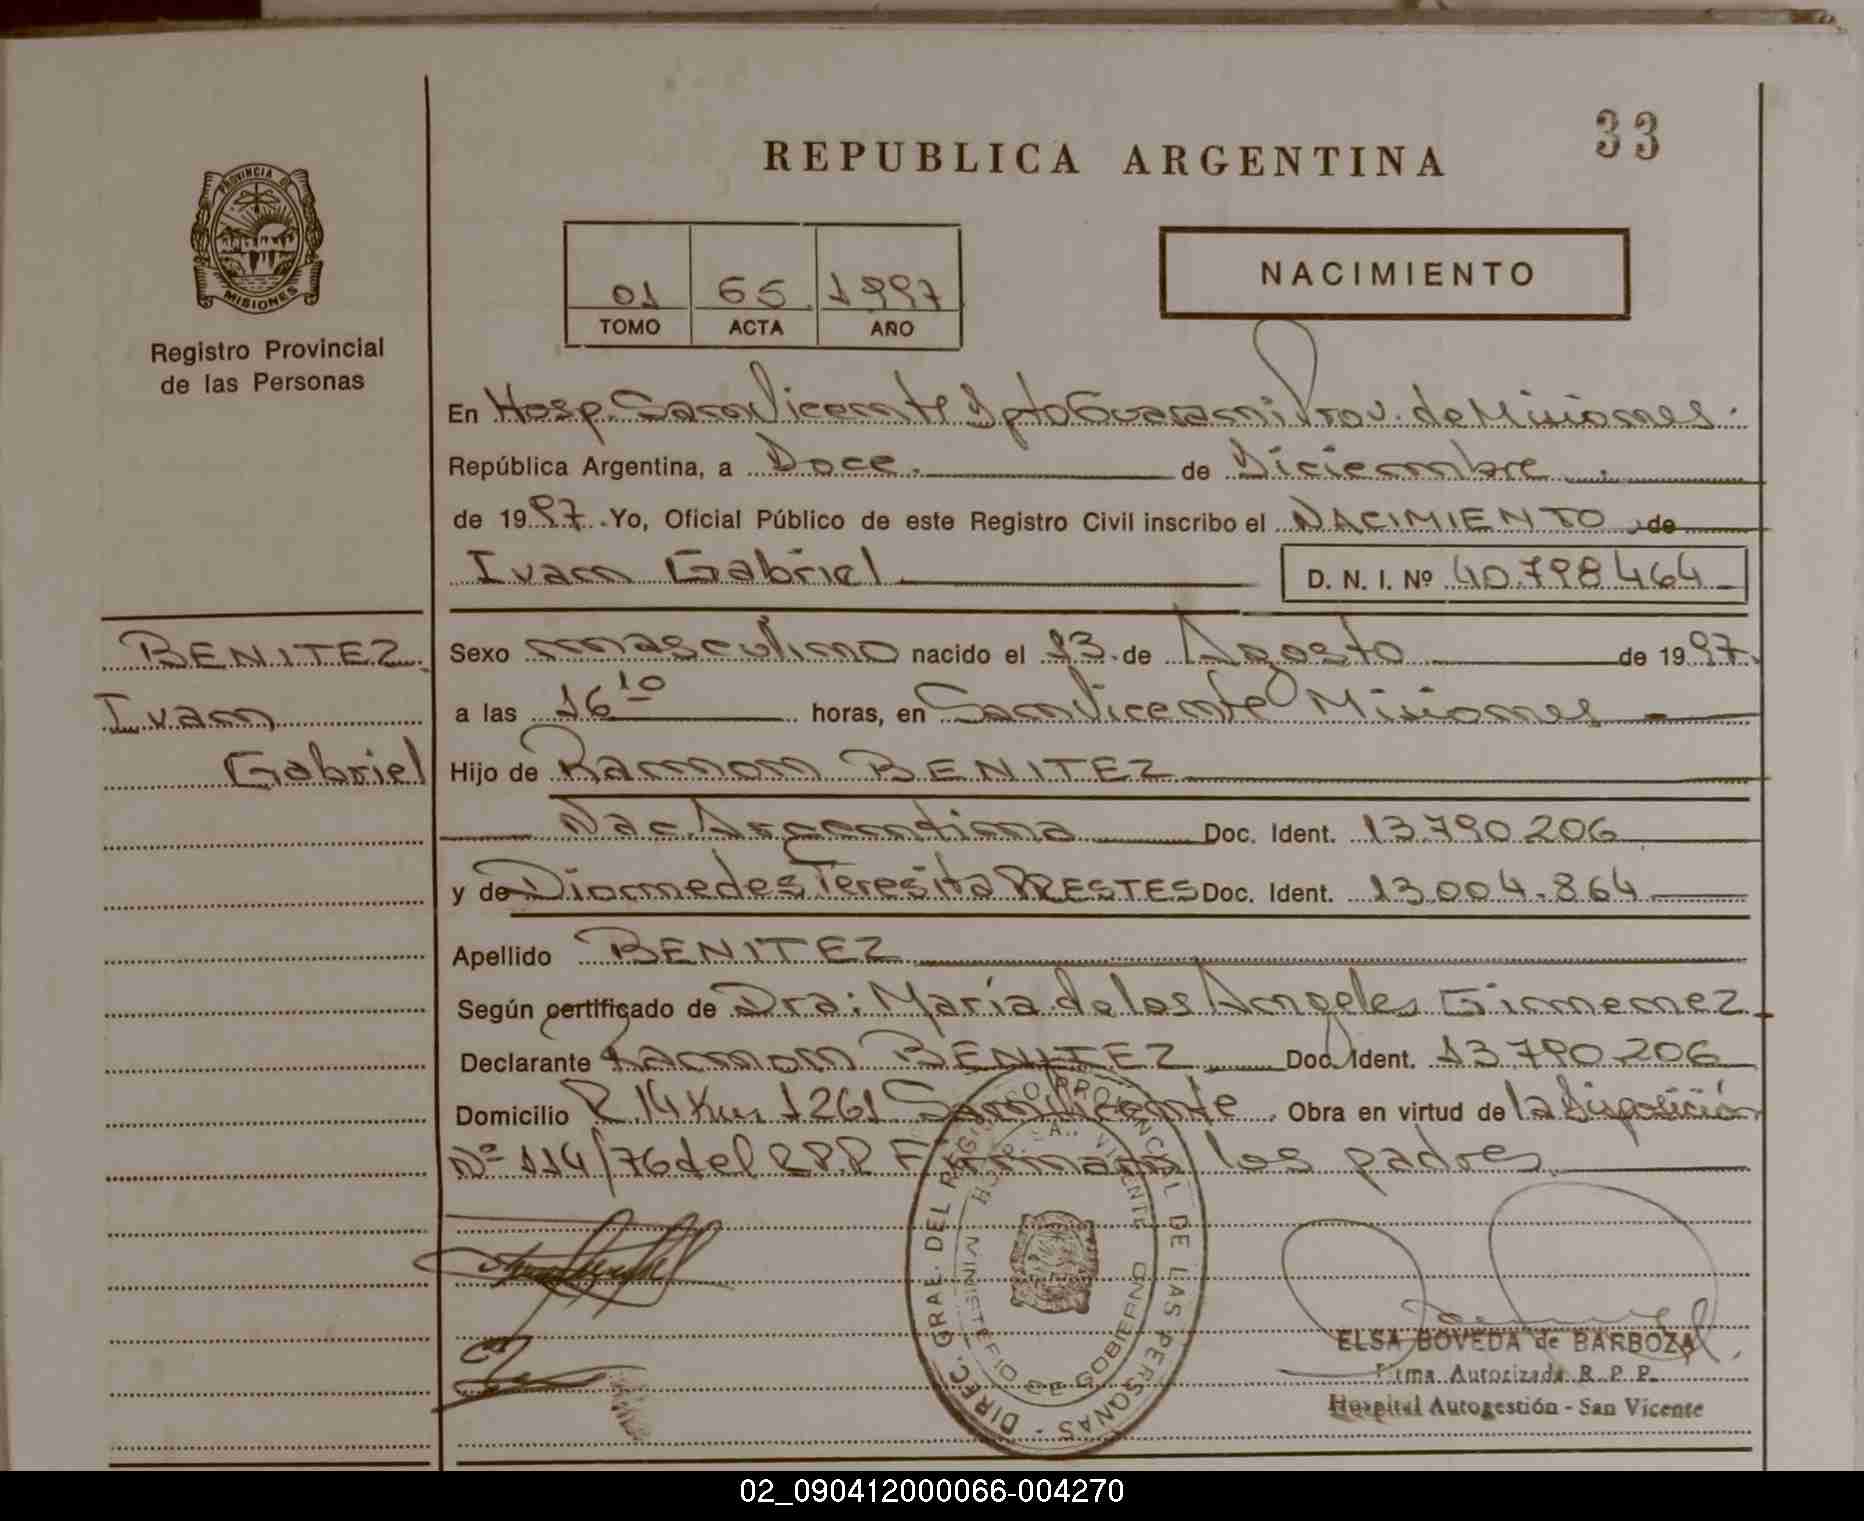 33
REPUBLICA ARGENTINA
PROVINCIA DE
MISIONES
Registro Provincial
de las Personas
01 65 1997
TOMO ACTA AÑO
NACIMIENTO
En Hosp. San Vicente Dpto Guarani Prov. de Misiones.
República Argentina, a Doce. de Diciembre
de 1997. Yo, Oficial Público de este Registro Civil inscribo el NACIMIENTO de
Ivan Gabriel D. N. I. Nº 40.798.464
BENITEZ
Ivan
Gabriel
Sexo masculino nacido el 13 de Agosto de 1997.
a las 16 10 horas, en San Vicente Misiones
Hijo de Ramon BENITEZ
Nac. Argentina Doc. Ident. 13.790.206
y de Diomedes Teresita PRESTES Doc. Ident. 13.004.864
Apellido BENITEZ
Según certificado de Dra: María de los Angeles Gimenez
Declarante Ramon BENITEZ Doc. Ident. 13.790.206
Domicilio R. 14 Km 1261 San Vicente. Obra en virtud de la Disposición
Nº 114/76 del R.P.P. Firman los padres
DIREC. GRAL. DEL REGISTRO PROVINCIAL DE LAS PERSONAS
HOSP. SAN VICENTE
MINISTERIO DE GOBIERNO
ELSA BOVEDA de BARBOZA
Firma Autorizada R. P. P.
Hospital Autogestión - San Vicente
02_090412000066-004270